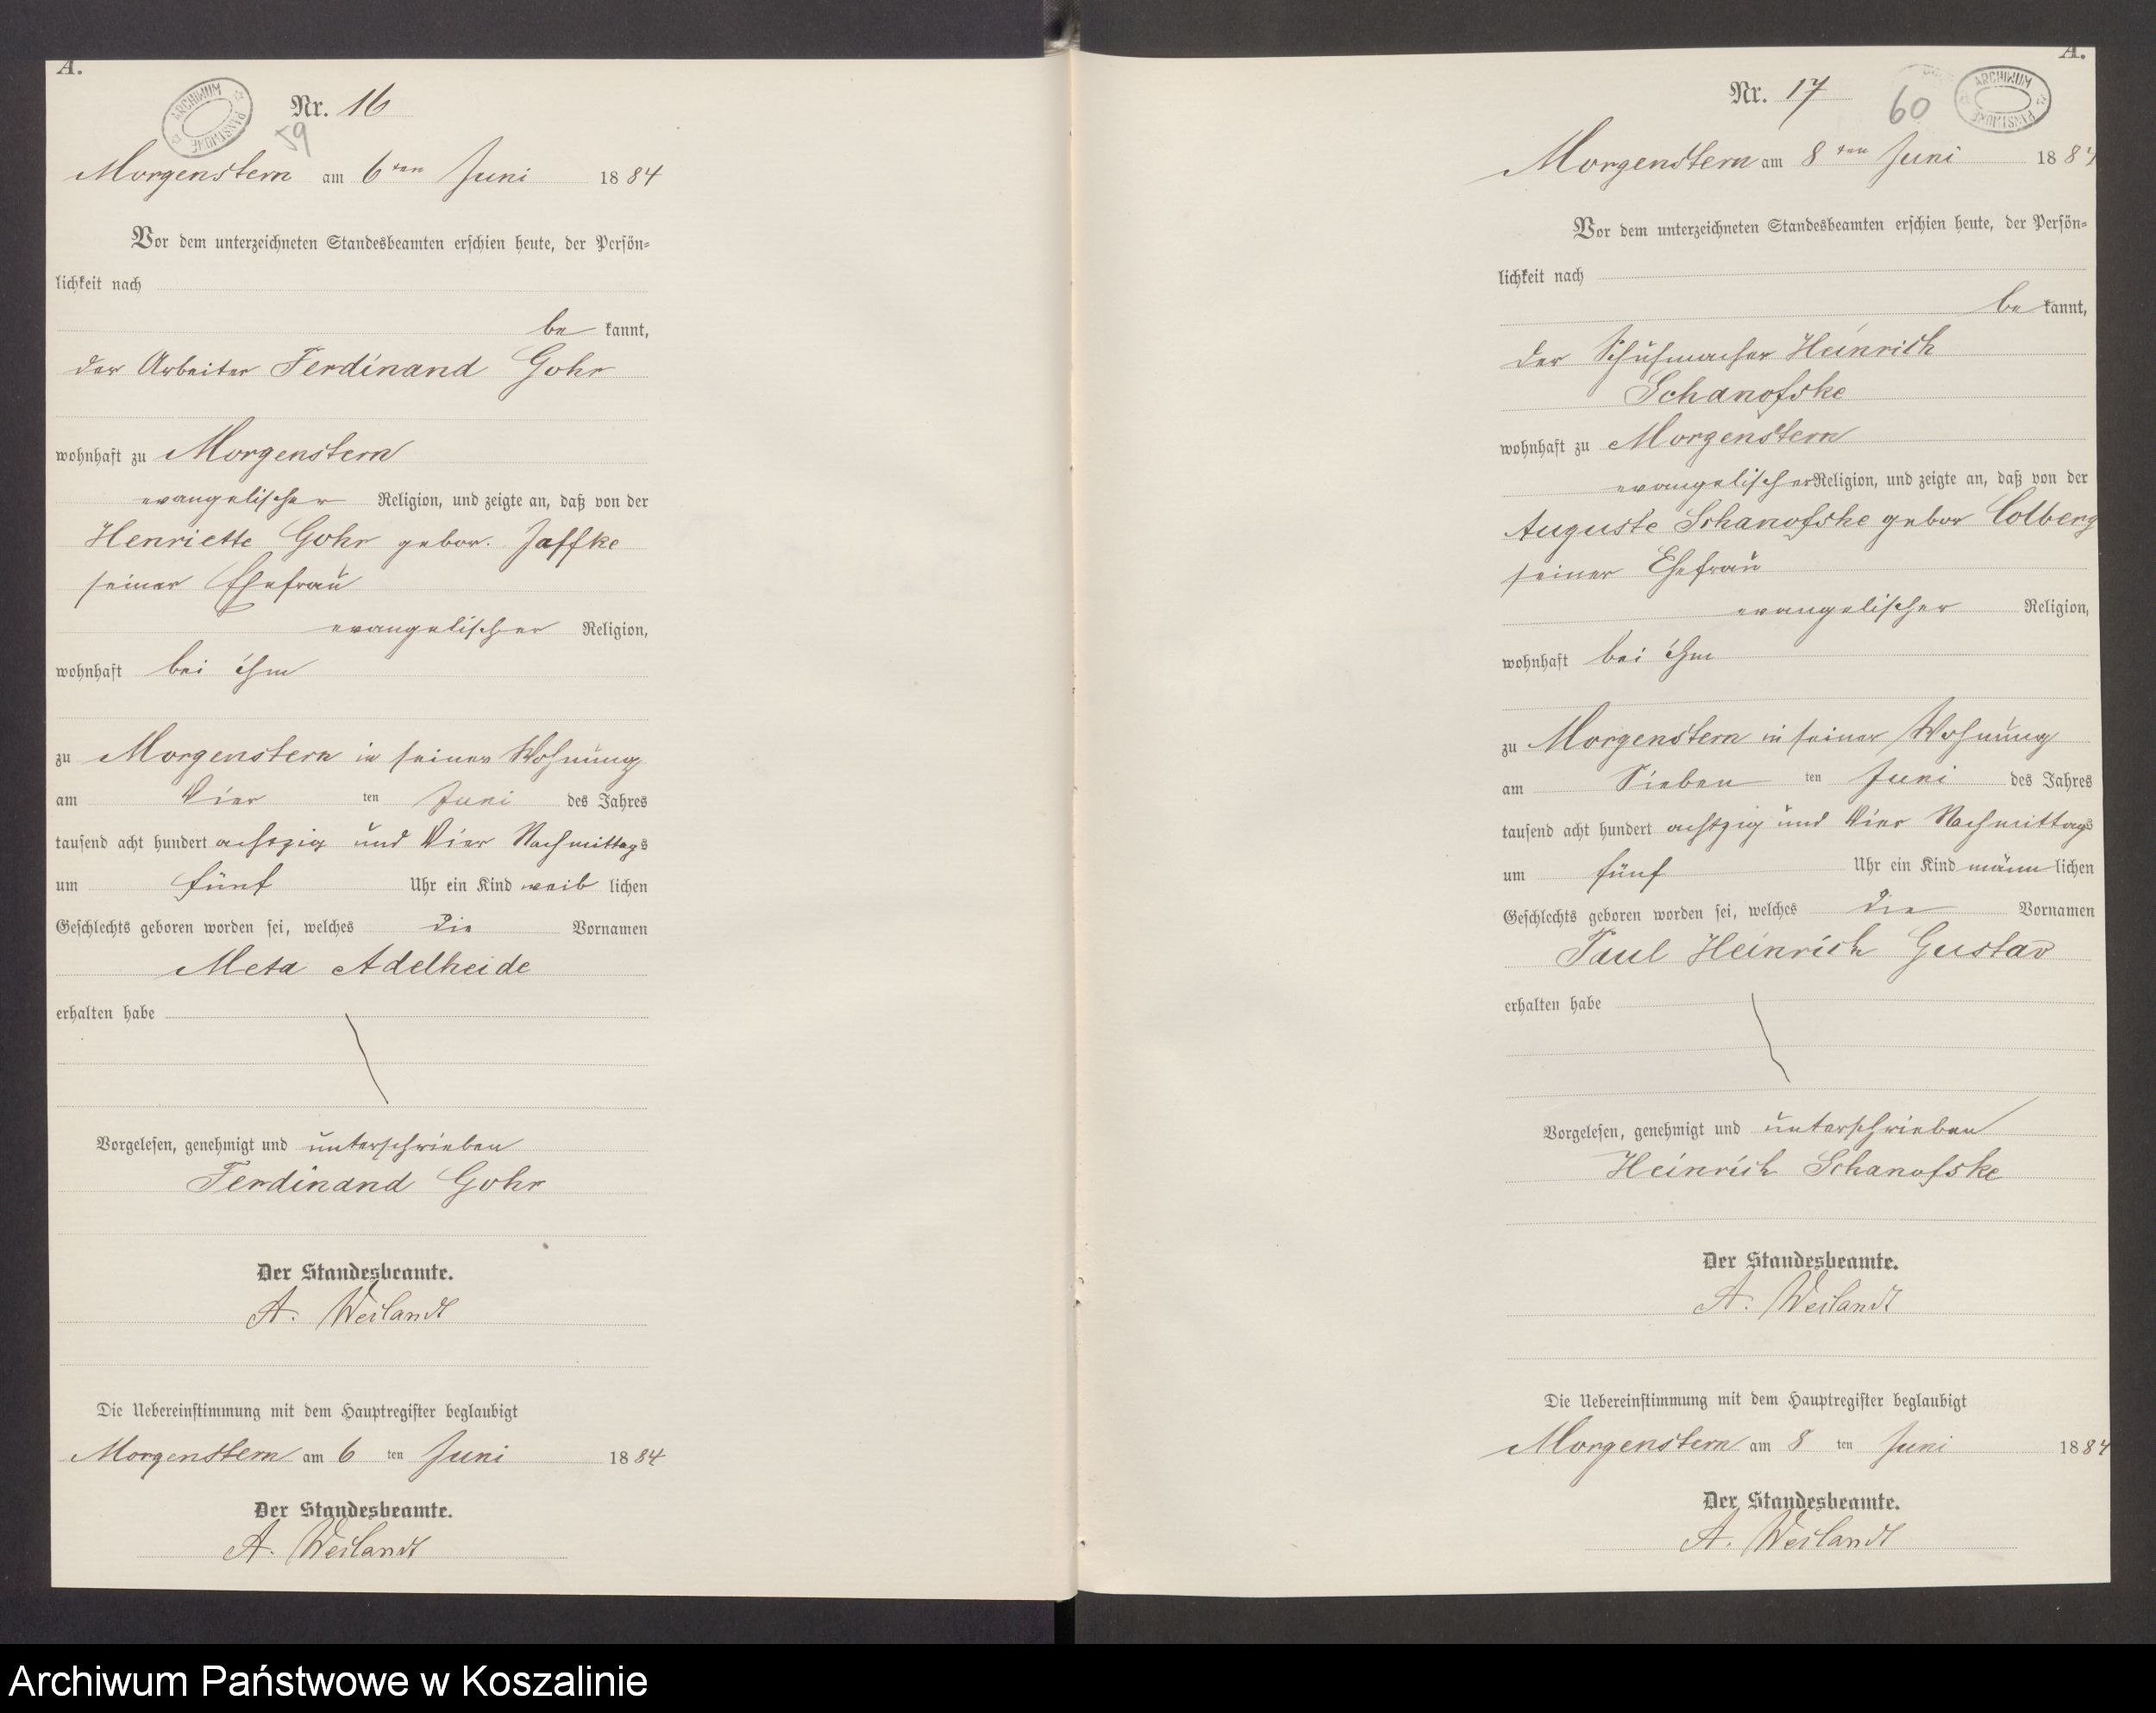 A.
ARCHIWUM PAŃSTWOWE
Nr. 16
59
Morgenstern am 6ten Juni 1884
Vor dem unterzeichneten Standesbeamten erschien heute, der Persön-
lichkeit nach
be kannt,
der Arbeiter Ferdinand Gohr
wohnhaft zu Morgenstern
evangelischer Religion, und zeigte an, daß von der
Henriette Gohr gebor. Jaffke
seiner Ehefrau
evangelischer Religion,
wohnhaft bei ihm
zu Morgenstern in seiner Wohnung
am Vier ten Juni des Jahres
tausend acht hundert achtzig und Vier Nachmittags
um fünf Uhr ein Kind weib lichen
Geschlechts geboren worden sei, welches die Vornamen
Meta Adelheide
erhalten habe
Vorgelesen, genehmigt und unterschrieben
Ferdinand Gohr
Der Standesbeamte.
A. Weilandt
Die Uebereinstimmung mit dem Hauptregister beglaubigt
Morgenstern am 6 ten Juni 1884
Der Standesbeamte.
A. Weilandt
A.
Nr. 17
60
ARCHIWUM PAŃSTWOWE
Morgenstern am 8ten Juni 1884
Vor dem unterzeichneten Standesbeamten erschien heute, der Persön-
lichkeit nach
be kannt,
der Schuhmacher Heinrich
Schanofske
wohnhaft zu Morgenstern
evangelischer Religion, und zeigte an, daß von der
Auguste Schanofske gebor Colberg
seiner Ehefrau
evangelischer Religion,
wohnhaft bei ihm
zu Morgenstern in seiner Wohnung
am Sieben ten Juni des Jahres
tausend acht hundert achtzig und Vier Nachmittags
um fünf Uhr ein Kind männ lichen
Geschlechts geboren worden sei, welches die Vornamen
Paul Heinrich Gustav
erhalten habe
Vorgelesen, genehmigt und unterschrieben
Heinrich Schanofske
Der Standesbeamte.
A. Weilandt
Die Uebereinstimmung mit dem Hauptregister beglaubigt
Morgenstern am 8 ten Juni 1884
Der Standesbeamte.
A. Weilandt
Archiwum Państwowe w Koszalinie